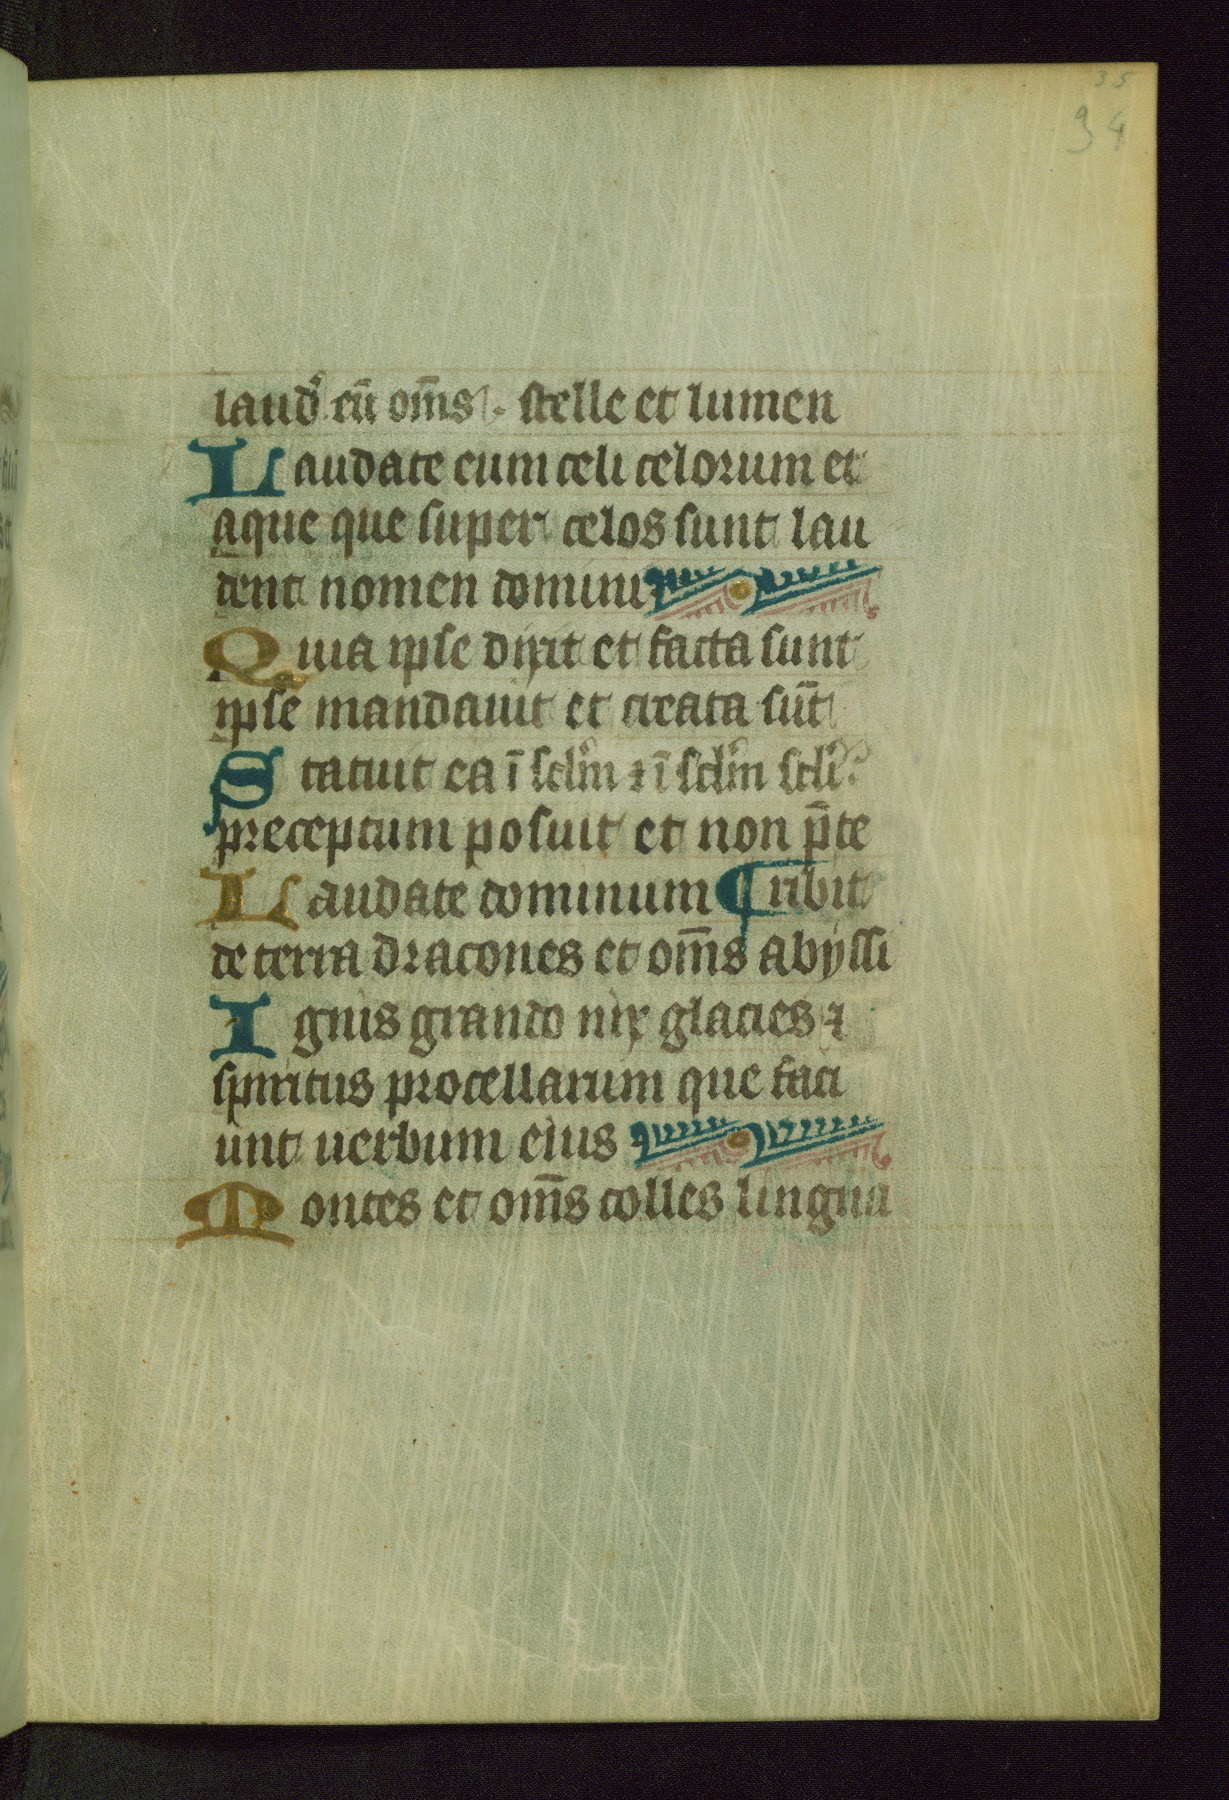 35
34
laud̉ eū om̄s. stelle et lumen
Laudate eum celi celorum et
aque que super celos sunt lau
dent nomen domini
Quia ipse dixit et facta sunt
ipse mandauit et creata sūt
Statuit ea ī sclm̄ ⁊ ī sclm̄ scli
preceptum posuit et non p̄te
Laudate dominum ¶ ribit
de terra dracones et om̄s abyssi
Ignis grando nix glacies ⁊
spiritus procellarum que faci
unt uerbum eius
Montes et om̄s colles lingna